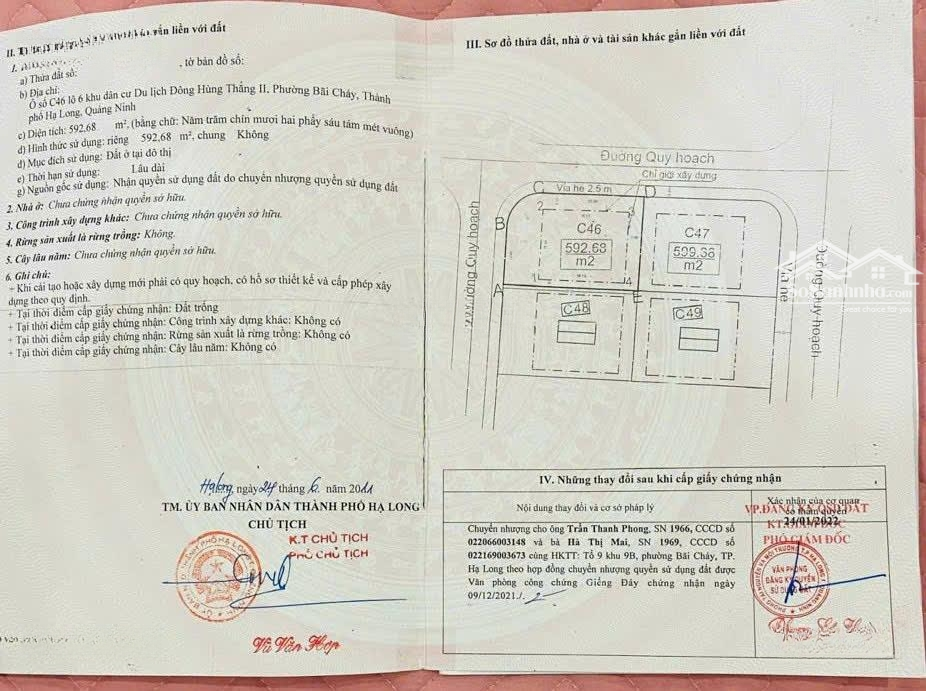 gắn liền với đất
a) Thửa đất số: , tờ bản đồ số:
b) Địa chỉ:
Ô số C46 lô 6 khu dân cư Du lịch Đông Hùng Thắng II, Phường Bãi Cháy, Thành
phố Hạ Long, Quảng Ninh
c) Diện tích: 592,68 m², (bằng chữ: Năm trăm chín mươi hai phẩy sáu tám mét vuông)
d) Hình thức sử dụng: riêng 592,68 m², chung Không
đ) Mục đích sử dụng: Đất ở tại đô thị
e) Thời hạn sử dụng: Lâu dài
g) Nguồn gốc sử dụng: Nhận quyền sử dụng đất do chuyển nhượng quyền sử dụng đất
2. Nhà ở: Chưa chứng nhận quyền sở hữu.
3. Công trình xây dựng khác: Chưa chứng nhận quyền sở hữu.
4. Rừng sản xuất là rừng trồng: Không.
5. Cây lâu năm: Chưa chứng nhận quyền sở hữu.
6. Ghi chú:
+ Khi cải tạo hoặc xây dựng mới phải có quy hoạch, có hồ sơ thiết kế và cấp phép xây
dựng theo quy định.
+ Tại thời điểm cấp giấy chứng nhận: Đất trống
+ Tại thời điểm cấp giấy chứng nhận: Công trình xây dựng khác: Không có
+ Tại thời điểm cấp giấy chứng nhận: Rừng sản xuất là rừng trồng: Không có
+ Tại thời điểm cấp giấy chứng nhận: Cây lâu năm: Không có
Hạ Long, ngày 24 tháng 6 năm 2011
TM. ỦY BAN NHÂN DÂN THÀNH PHỐ HẠ LONG
CHỦ TỊCH
K.T CHỦ TỊCH
PHÓ CHỦ TỊCH
Vũ Văn Hợp
III. Sơ đồ thửa đất, nhà ở và tài sản khác gắn liền với đất
Đường Quy hoạch
Chỉ giới xây dựng
C Vỉa hè 2.5 m D
2 3
B
C46
592.68
m2
C47
599.38
m2
1 4
A E
C48
C49
Đường Quy hoạch
Vỉa hè
Đường Quy hoạch
IV. Những thay đổi sau khi cấp giấy chứng nhận
Nội dung thay đổi và cơ sở pháp lý
Xác nhận của cơ quan
có thẩm quyền
VP.ĐĂNG KÝ QSD ĐẤT
24/01/2022
KT.GIÁM ĐỐC
PHÓ GIÁM ĐỐC
Chuyển nhượng cho ông Trần Thanh Phong, SN 1966, CCCD số
022066003148 và bà Hà Thị Mai, SN 1969, CCCD số
022169003673 cùng HKTT: Tổ 9 khu 9B, phường Bãi Cháy, TP.
Hạ Long theo hợp đồng chuyển nhượng quyền sử dụng đất được
Văn phòng công chứng Giếng Đáy chứng nhận ngày
09/12/2021./.
VĂN PHÒNG
ĐĂNG KÝ QUYỀN
SỬ DỤNG ĐẤT